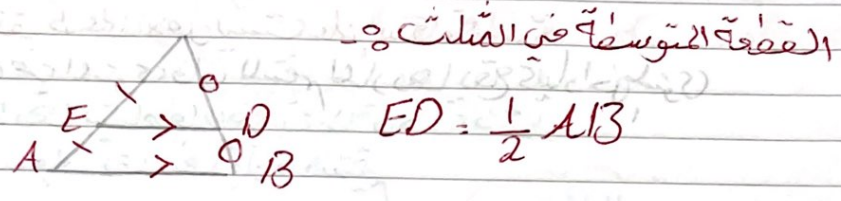 القطعة المتوسطة في المثلث :-
E D ED = 1/2 AB
A B